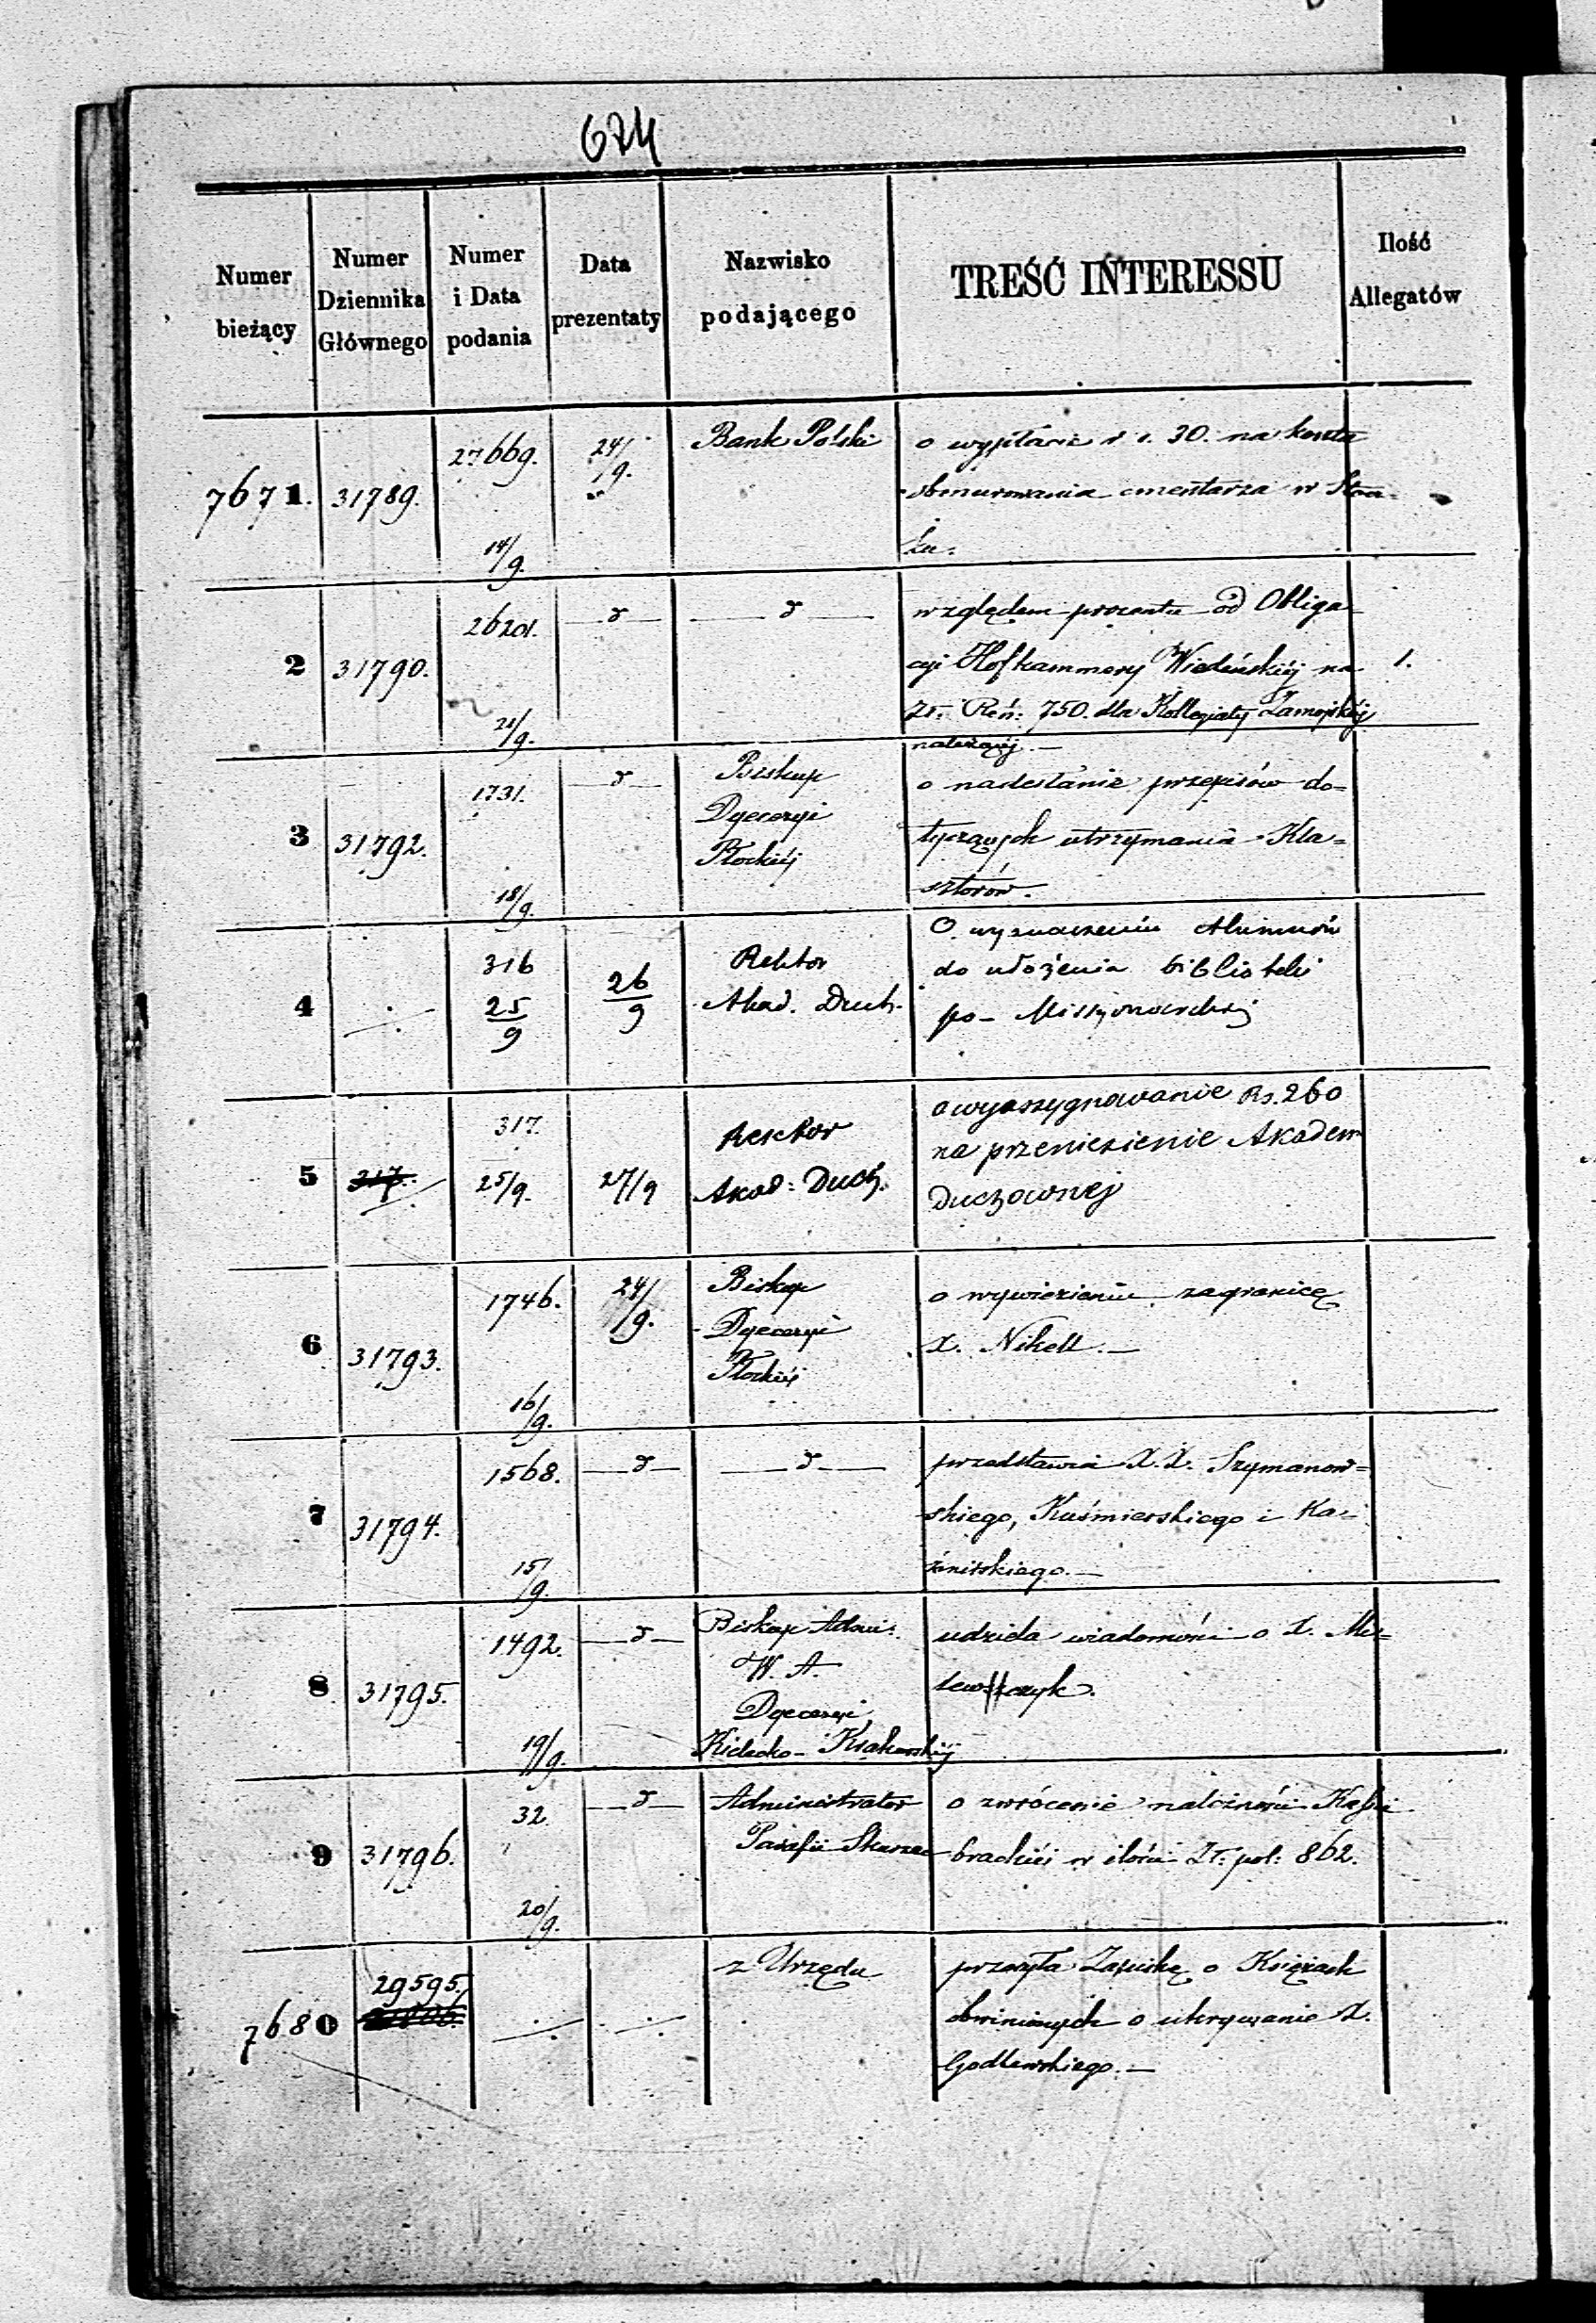 624
Numer bieżący
Numer Dziennika Głównego
Numer i Data podania
Data prezentaty
Nazwisko podającego
TREŚĆ INTERESSU
Ilość Allegatów
7671. 31789. 27669. 14/9. 24/9. Bank Polski o wypłacie r s. 30. na koszta
obmurowania cmentarza w
2 31790. 21/9. d d względem procentu od Obliga
cyi Hofkammery Wiedeńskiéj na 1.
Zł: Reń: 750. dla Kollegiaty Zamojskiéj
należącéj. —
3 31792. 1731. 18/9. d Biskup o nadesłanie przepisów do=
Dyecezyi tyczących utrzymania Kla=
Płockiéj sztorów.
4 316 25/9 26/9 Rektor O wyznaczeniu Alumnów
Akad. Duch. do ułożenia biblioteki
po- Missyonarskiej
5 317. 317. 25/9. 27/9 Rektor o wyassygnowanie Rs. 260
Akad: Duch. na przeniesienie Akadem
Duchownej
6 31793. 1746. 16/9. 24/9. Biskup o wywiezieniu zagranicę
Dyecezyi X. Nikell. —
Płockiéj
7 31794. 1568. 15/9. d d przedstawia X.X. Szymanow=
skiego, Kuśmierskiego i Ka=
8 31795. 1492. 19/9. d Biskup Admi: udziela wiadomości o X. Mi=
W. A.
Dyecezyi
Kielecko- Krakowskiéj
9 31796. 32. 20/9. d Administrator o zwrócenie należności Kassie
Parafii brackiéj w ilości Zł: pol: 862.
7680 29595. z Urzędu przesyła Zapiskę o Księżach
obwinionych o ukrywanie X.
Godlewskiego. —